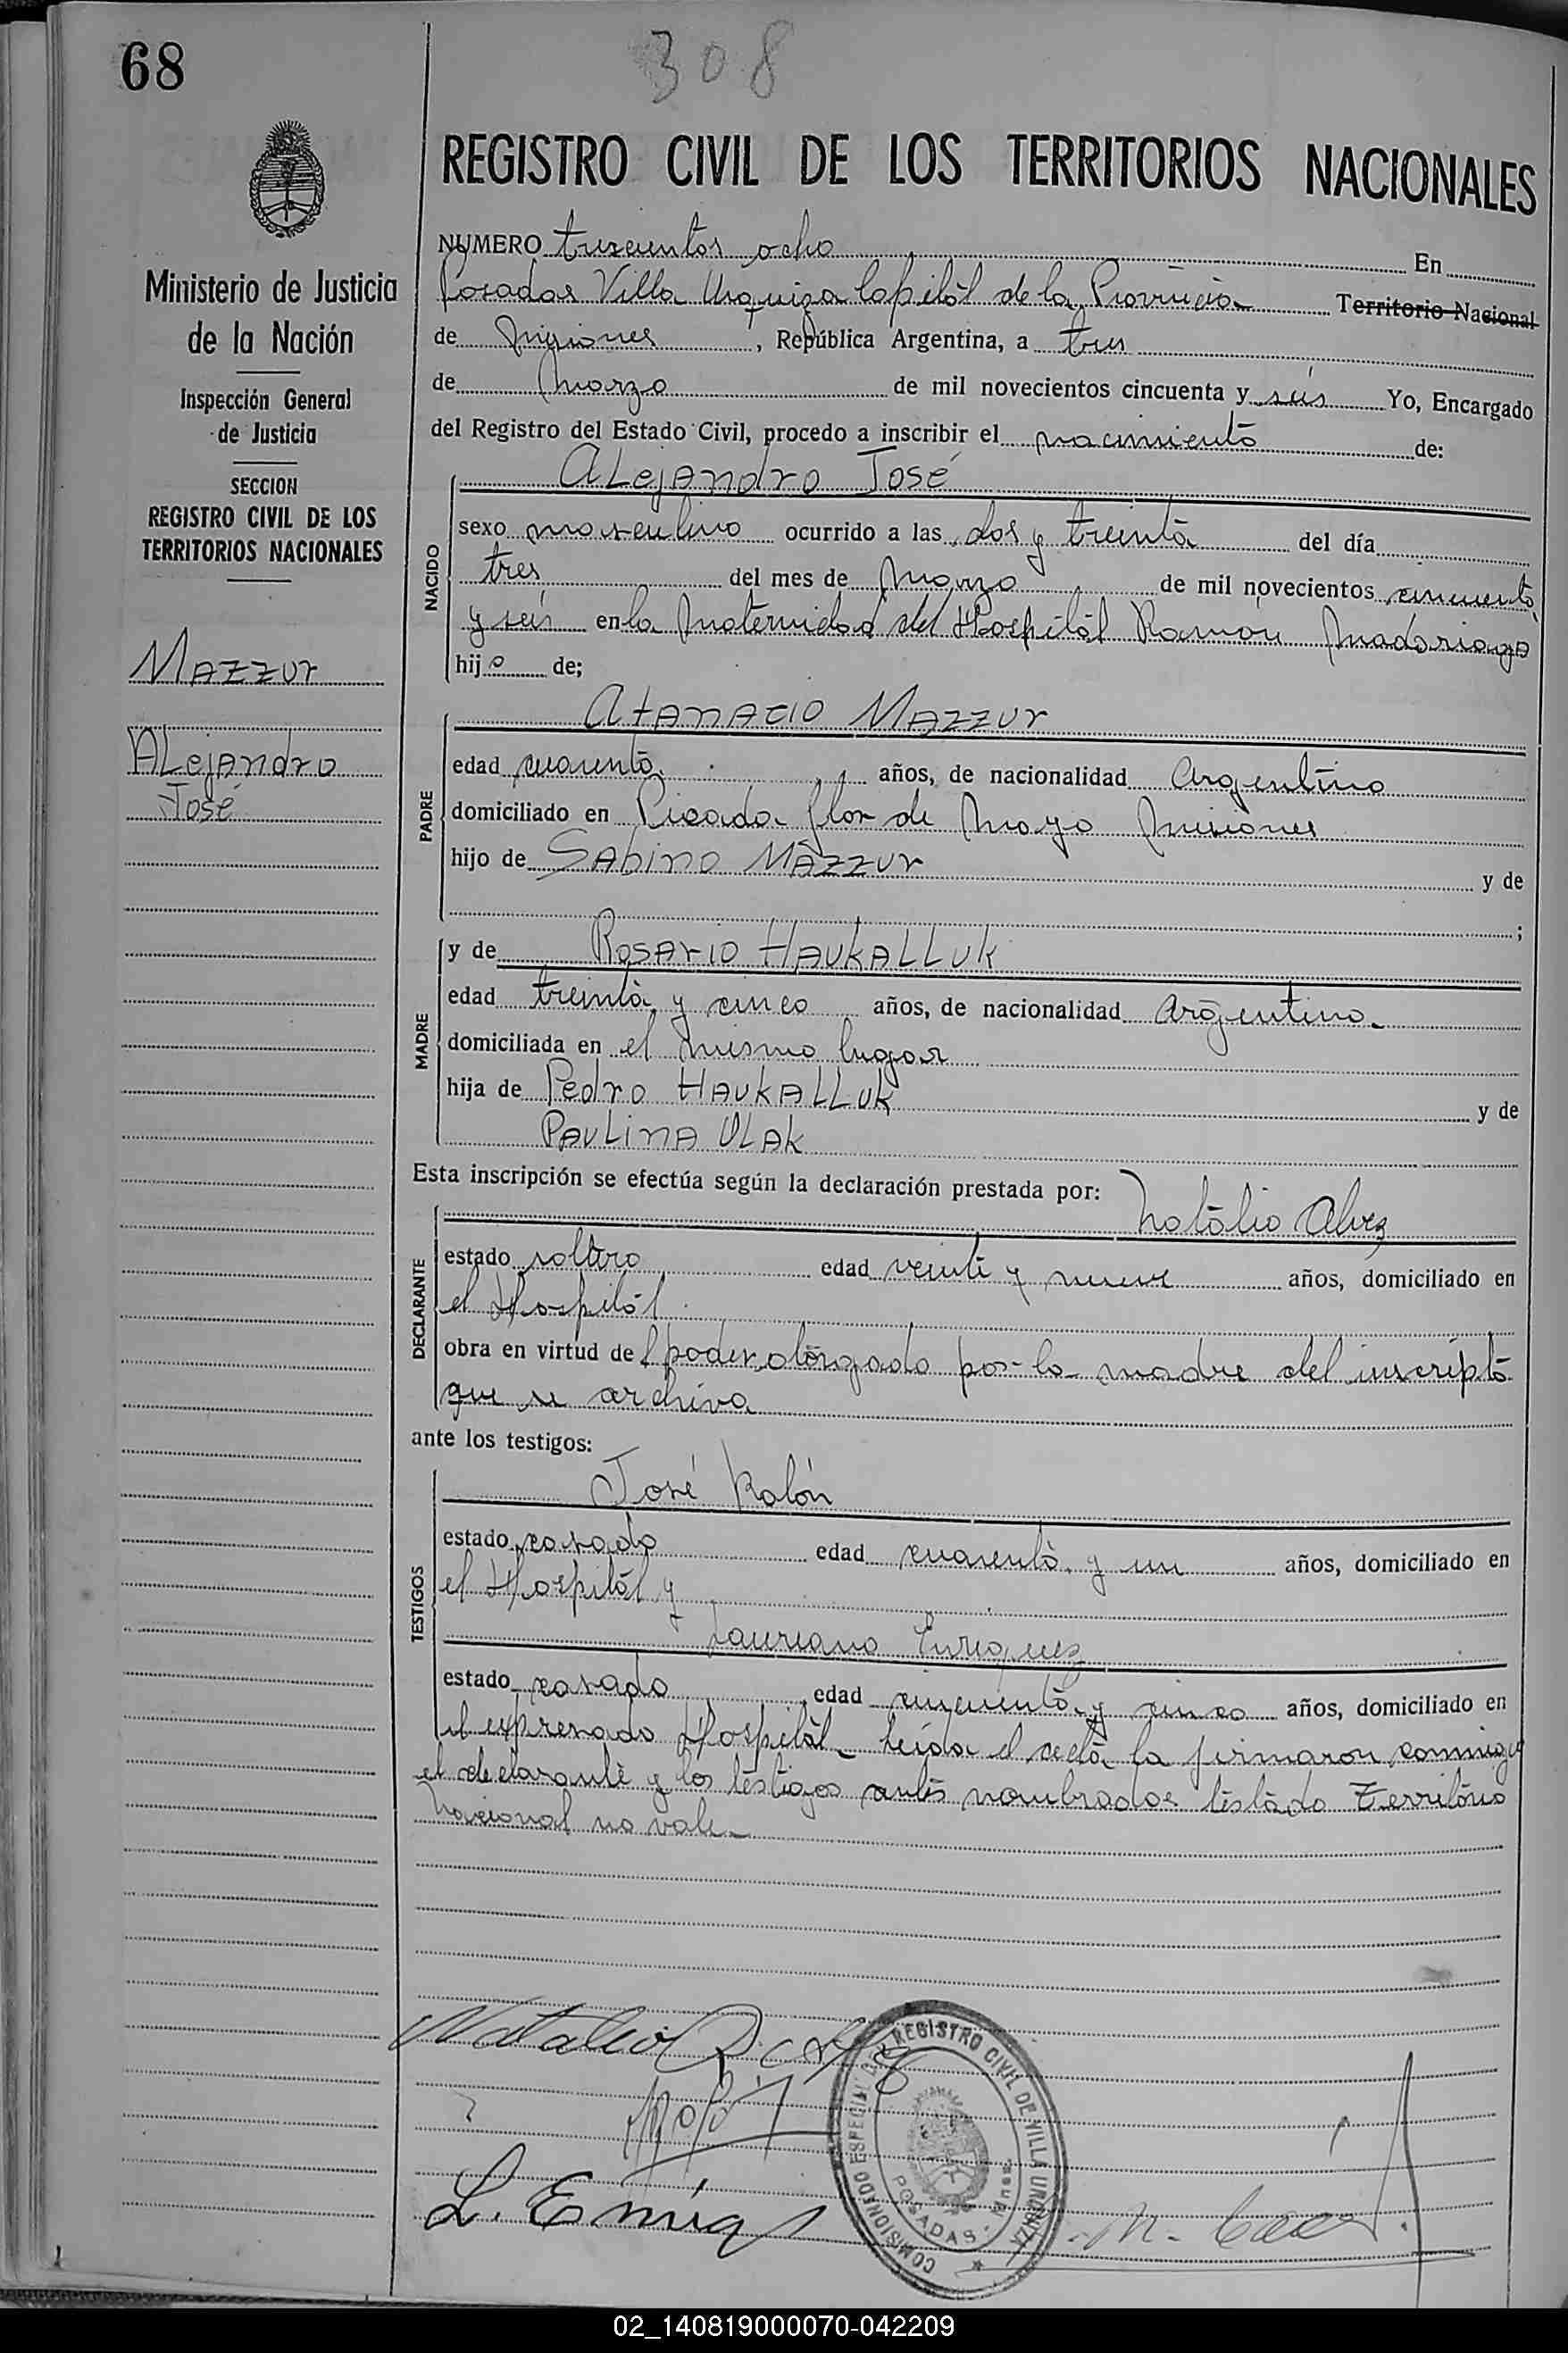 68
308
REGISTRO CIVIL DE LOS TERRITORIOS NACIONALES
Ministerio de Justicia
de la Nación
Inspección General
de Justicia
SECCION
REGISTRO CIVIL DE LOS
TERRITORIOS NACIONALES
Mazzur
Alejandro
José
NUMERO trescientos ocho En
Posadas Villa Urquiza Capitál de la Provincia Territorio Nacional
de Misiones, República Argentina, a tres
de Marzo de mil novecientos cincuenta y seis Yo, Encargado
del Registro del Estado Civil, procedo a inscribir el nacimiento de:
NACIDO
Alejandro José
sexo masculino ocurrido a las dos y treinta del día
tres del mes de Marzo de mil novecientos cincuenta
y seis en la Maternidad del Hospital Ramón Madariaga
hijo de;
PADRE
Atanacio Mazzur
edad cuarenta años, de nacionalidad Argentino
domiciliado en Picada flor de Mayo Misiones
hijo de Sabino Mazzur y de
;
MADRE
y de Rosario Haukalluk
edad treinta y cinco años, de nacionalidad Argentina
domiciliada en el mismo lugar
hija de Pedro Haukalluk y de
Paulina Ulak
Esta inscripción se efectúa según la declaración prestada por:
Natalio Alvez
DECLARANTE
estado soltero edad veinti y nueve años, domiciliado en
el Hospital
obra en virtud del poder otorgado por la madre del inscripto
que se archiva
ante los testigos:
TESTIGOS
José
estado casado edad cuarenta y un años, domiciliado en
el Hospital y
Laureano Enriquez
estado casado edad cincuenta y cinco años, domiciliado en
el expresado Hospital leída el acta la firmaron conmigo
el declarante y los testigos antes nombrados testado Territorio
Nacional no vale
Natalio
L. Enriq
COMISIONADO ESPECIAL DEL REGISTRO CIVIL DE VILLA URQUIZA
POSADAS - Mnes
02_140819000070-042209